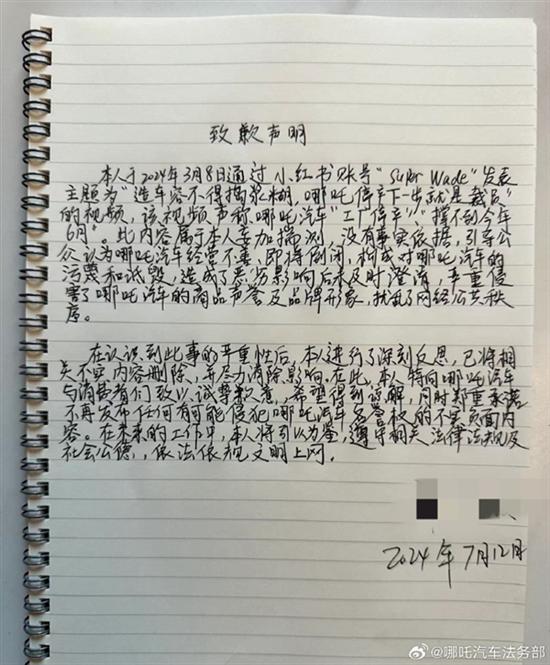 致歉声明
本人于2024年3月8日通过小红书账号"Super Wade"发表
主题为"造车容不得捣浆糊,哪吒停产下一步就是裁员"
的视频,该视频声称哪吒汽车"工厂停产""撑不到今年
6月"。此内容属于本人妄加揣测,没有事实依据,引导公
众认为哪吒汽车经营不善、即将倒闭,构成对哪吒汽车的
污蔑和诋毁,造成了恶劣影响后未及时澄清,严重侵
害了哪吒汽车的商品声誉及品牌形象,扰乱了网络公共秩
序。
在认识到此事的严重性后,本人进行了深刻反思,已将相
关不实内容删除、并尽力消除影响。在此,本人特向哪吒汽车
与消费者们致以诚挚歉意,希望得到谅解,同时郑重承诺
不再发布任何有可能侵犯哪吒汽车名誉权的不实负面内
容。在未来的工作中,本人将引以为鉴,遵守相关法律法规及
社会公德,依法依规文明上网。
2024年7月12日
@哪吒汽车法务部